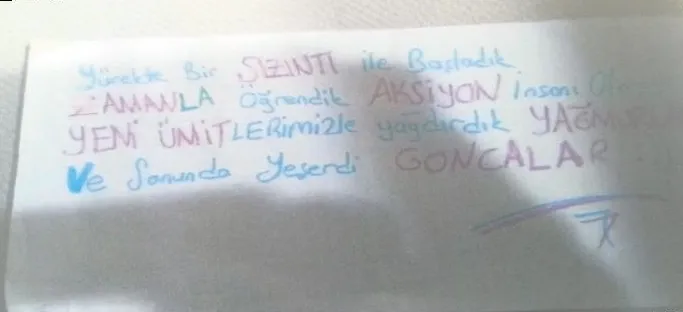 Yürekte Bir SIZINTI ile Başladık
ZAMANLA Öğrendik AKSİYON insanı
YENİ ÜMİTLERimizle yağdırdık
Ve Sonunda Yeşerdi GONCALAR.